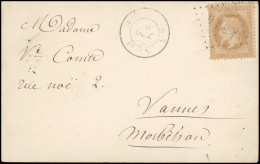 Madame
Vve Comte
rue noé 2.
Vannes
Morbihan